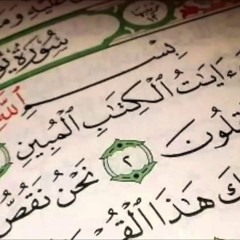 سُورَةُ يُو
بِسْمِ ٱللَّهِ
ءَايَٰتُ ٱلْكِتَٰبِ ٱلْمُبِينِ
قِلُونَ ٢ نَحْنُ نَقُصُّ
كَ هَٰذَا ٱلْقُرْ